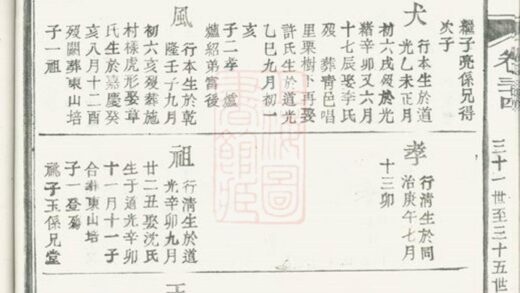 三十一世至三十五世
繼子亮係兄得
次子
犬
行本生於道
光乙未正月
初六戌歿於光
緒辛卯又六月
十七辰娶李氏
歿葬青邑唱
里栗樹卜再娶
許氏生於道光
乙巳九月初一
亥
子二孝爐
爐紹弟富後
風
行本生於乾
隆壬子九月
初六亥歿葬施
村祿虎形娶章
氏生於嘉慶癸
亥八月十二酉
歿闕葬東山培
子一祖
孝
行清生於同
治庚午七月
十三卯
祖
行清生於道
光辛卯九月
廿二丑娶沈氏
生于道光辛卯
十一月十一子
合葬東山培
子一發
子玉係兄堂